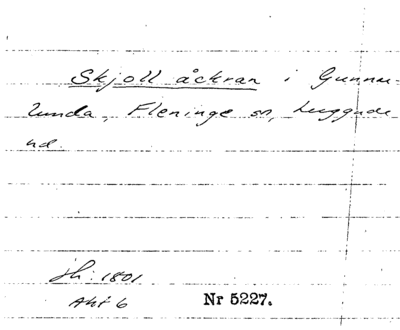 Skjoll åckran i Gunnar-
lunda, Fleninge sn, Luggude
hd.
jh: 1801
Akt 6
Nr 5227.